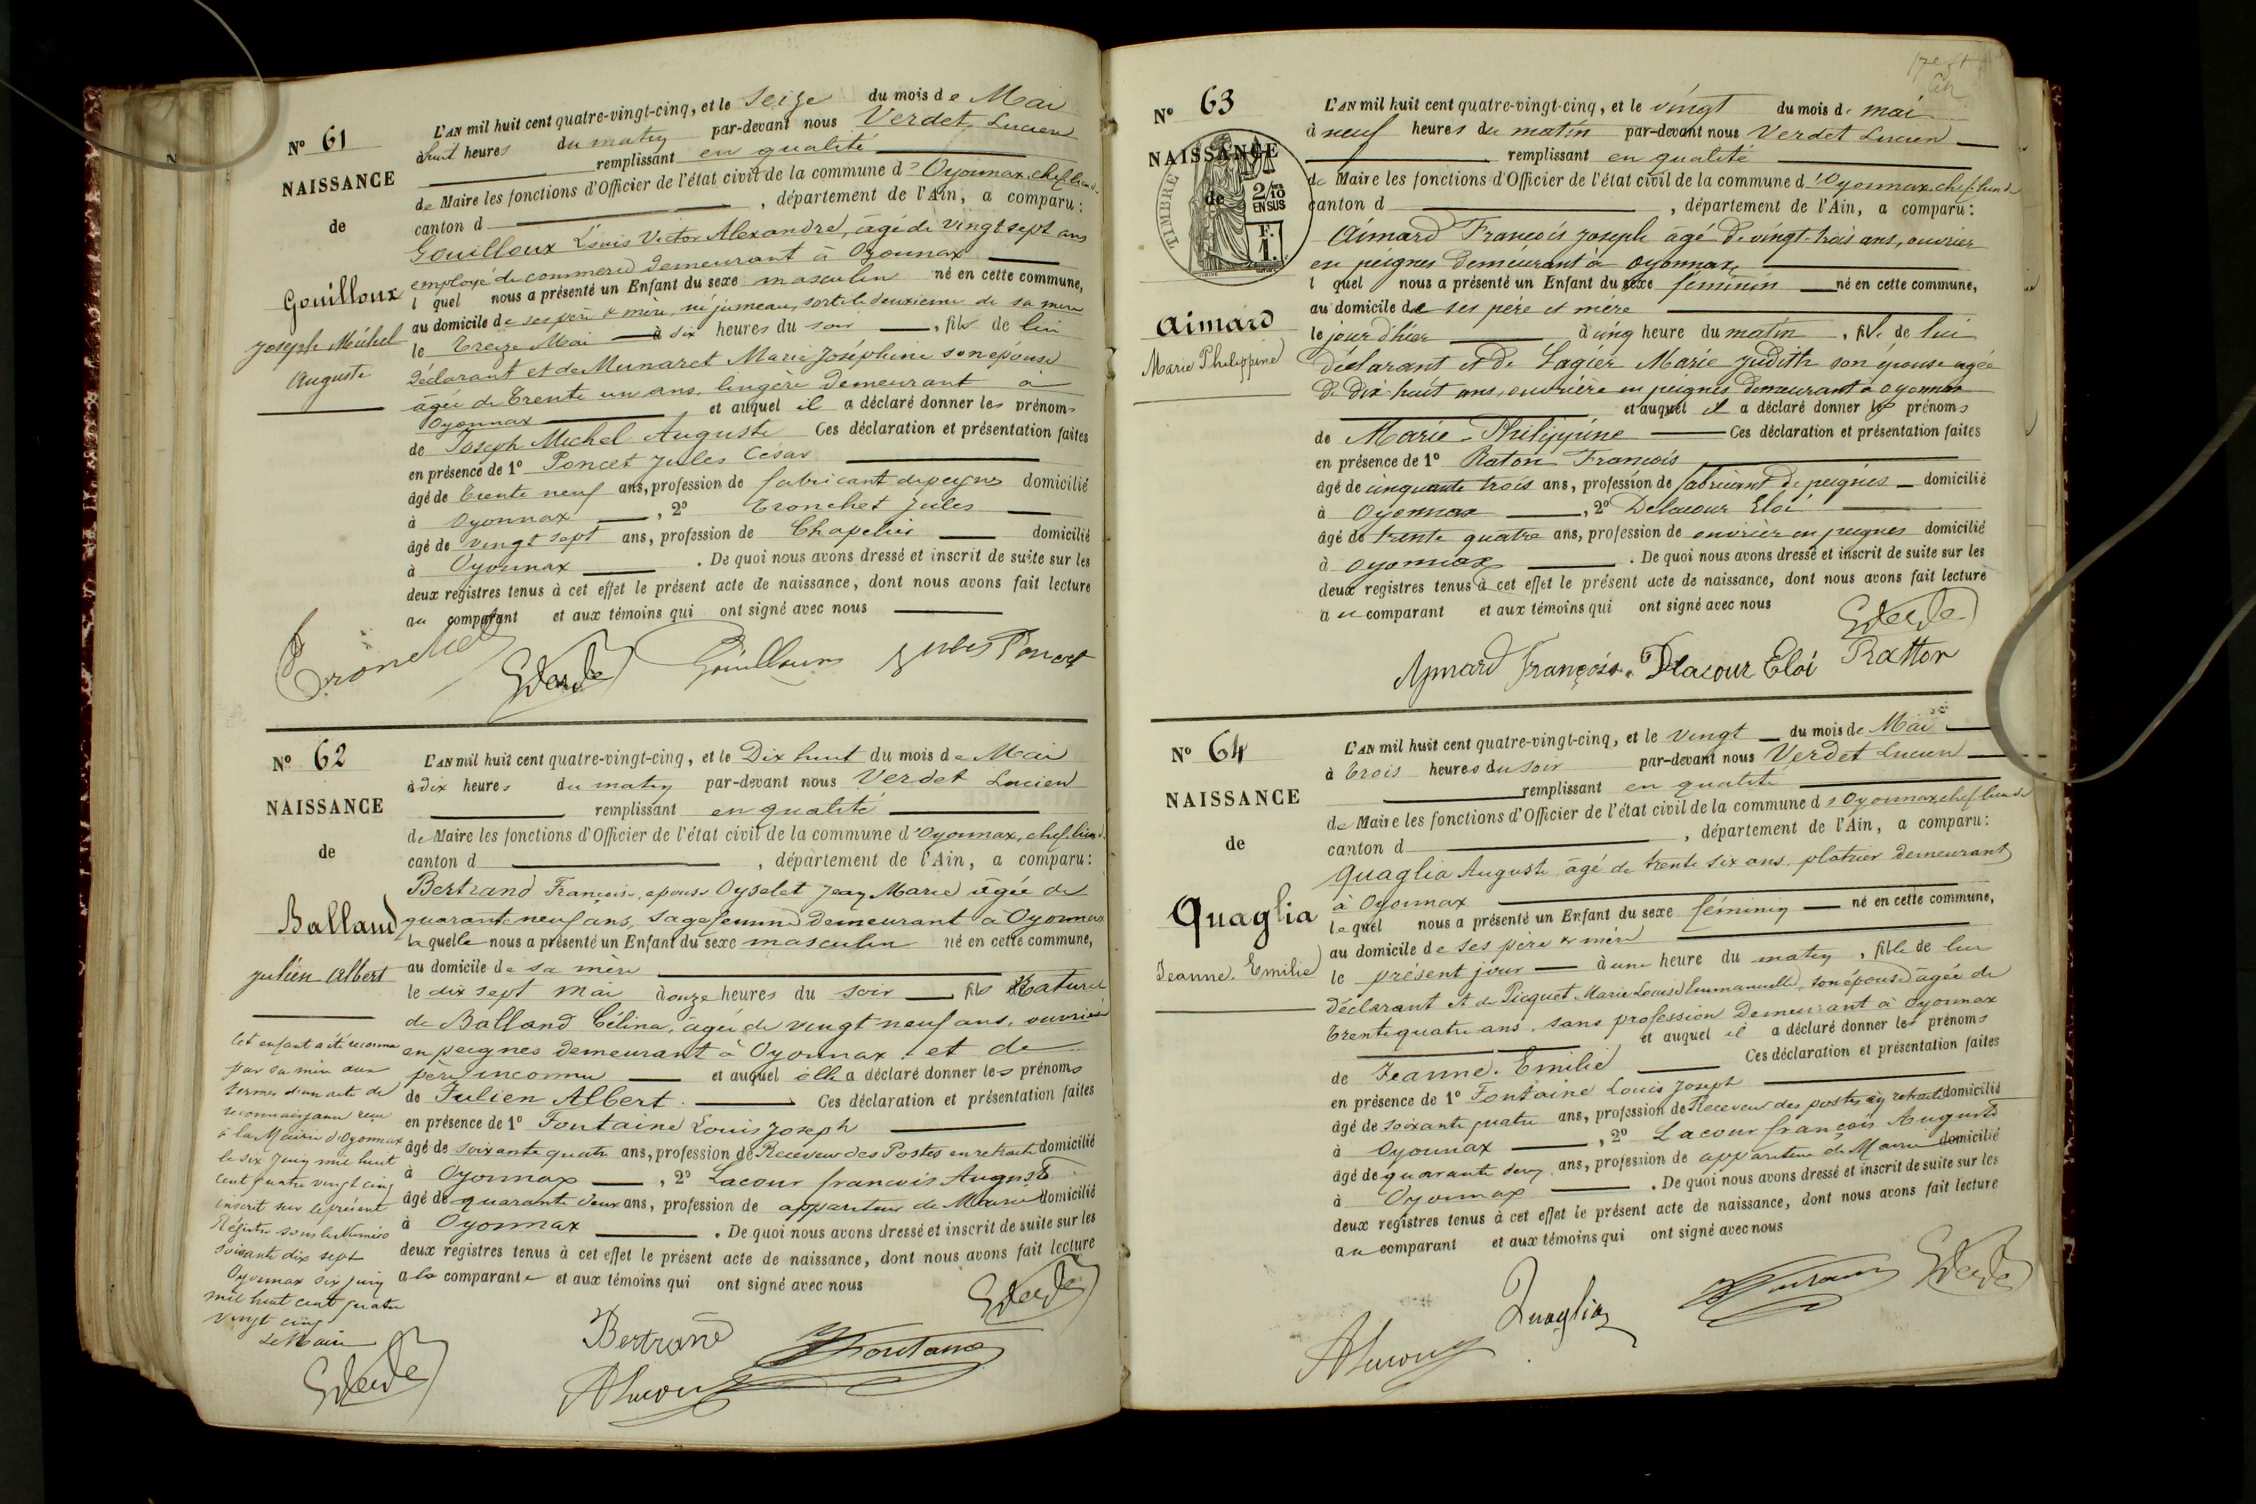 N° 61
NAISSANCE
de
Gouilloux
Joseph Michel
Auguste
L'AN mil huit cent quatre-vingt-cinq, et le seize du mois de Mai
à huit heures du matin par-devant nous Verdet Lucien
remplissant en qualité
de Maire les fonctions d'Officier de l'état civil de la commune d'Oyonnax, chef lieu de
canton d , département de l'Ain, a comparu :
Gouilloux Louis Victor Alexandre, âgé de vingt sept ans
employé de commerce demeurant à Oyonnax
l quel nous a présenté un Enfant du sexe masculin né en cette commune,
au domicile de ses père & mère, né jumeau, sorti le deuxième de sa mère
le treize Mai à six heures du soir , fils de lui
déclarant et de Munaret Marie Joséphine son épouse
âgée de trente un ans, lingère demeurant à
Oyonnax et auquel il a déclaré donner les prénoms
de Joseph Michel Auguste Ces déclaration et présentation faites
en présence de 1° Poncet Jules César
âgé de trente neuf ans, profession de fabricant de peignes domicilié
à Oyonnax , 2° Tronchet Jules
âgé de vingt sept ans, profession de Chapelier domicilié
à Oyonnax . De quoi nous avons dressé et inscrit de suite sur les
deux registres tenus à cet effet le présent acte de naissance, dont nous avons fait lecture
au comparant et aux témoins qui ont signé avec nous
Tronchet Gouilloux Jules Poncet
N° 62
NAISSANCE
de
Balland
Julien Albert
L'AN mil huit cent quatre-vingt-cinq, et le Dix huit du mois de Mai
à dix heures du matin par-devant nous Verdet Lucien
remplissant en qualité
de Maire les fonctions d'Officier de l'état civil de la commune d'Oyonnax, chef lieu d
canton d , département de l'Ain, a comparu :
Bertrand Françoise, épouse Oyselet Jean Marie âgée de
quarante neuf ans, sage femme demeurant à Oyonnax
laquelle nous a présenté un Enfant du sexe masculin né en cette commune,
au domicile de sa mère
le dix sept mai à onze heures du soir fils Naturel
de Balland Célina, âgée de vingt neuf ans, ouvrière
en peignes demeurant à Oyonnax et de
père inconnu et auquel elle a déclaré donner les prénoms
de Julien Albert. Ces déclaration et présentation faites
en présence de 1° Fontaine Louis Joseph
âgé de soixante quatre ans, profession de Receveur des Postes en retraite domicilié
à Oyonnax , 2° Lacour francois Auguste
âgé de quarante deux ans, profession de appariteur de Mairie domicilié
à Oyonnax . De quoi nous avons dressé et inscrit de suite sur les
deux registres tenus à cet effet le présent acte de naissance, dont nous avons fait lecture
a la comparante et aux témoins qui ont signé avec nous
Cet enfant a été reconnu
par sa mère aux
termes d'un acte de
reconnaissance reçu
à la Mairie d'Oyonnax
le six Juin mil huit
cent quatre vingt cinq
inscrit sur le présent
Régistre sous le Numéro
soixante dix sept
Oyonnax six juin
mil huit cent quatre
vingt cinq
Le Maire
Bertrand
Fontaine
N° 63
NAISSANCE
de
TIMBRE
2/10 EN SUS
F. 1.
Aimard
Marie Philippine
L'AN mil huit cent quatre-vingt-cinq, et le vingt du mois de mai
à neuf heures du matin par-devant nous Verdet Lucien
remplissant en qualité
de Maire les fonctions d'Officier de l'état civil de la commune d'Oyonnax chef lieu de
canton d , département de l'Ain, a comparu :
Aimard François Joseph âgé de vingt-trois ans, ouvrier
en peignes demeurant à Oyonnax,
l quel nous a présenté un Enfant du sexe féminin né en cette commune,
au domicile de ses père et mère
le jour d'hier à cinq heure du matin , fille de lui
déclarant et de Lagier Marie Judith son épouse agée
de dix huit ans, ouvrière en peignes demeurant à Oyonnax
et auquel il a déclaré donner les prénoms
de Marie-Philippine Ces déclaration et présentation faites
en présence de 1° Raton François
âgé de cinquante trois ans, profession de fabricant de peignes domicilié
à Oyonnax , 2° Delacour Eloi
âgé de trente quatre ans, profession de ouvrier en peignes domicilié
à Oyonnax . De quoi nous avons dressé et inscrit de suite sur les
deux registres tenus à cet effet le présent acte de naissance, dont nous avons fait lecture
au comparant et aux témoins qui ont signé avec nous
Aymard François. Dlacour Eloi Ratton
N° 64
NAISSANCE
de
Quaglia
Jeanne. Emilie
L'AN mil huit cent quatre-vingt-cinq, et le vingt du mois de Mai
à trois heures du soir par-devant nous Verdet Lucien
remplissant en qualité
de Maire les fonctions d'Officier de l'état civil de la commune d'Oyonnax, chef lieu de
canton d , département de l'Ain, a comparu :
Quaglia Auguste âgé de trente six ans, platrier demeurant
à Oyonnax
lequel nous a présenté un Enfant du sexe féminin né en cette commune,
au domicile de ses père & mère
le présent jour à une heure du matin , fille de lui
déclarant et de Picquet Marie Louise Emmanuelle, son épouse âgée de
trente quatre ans, sans profession demeurant à Oyonnax
et auquel il a déclaré donner les prénoms
de Jeanne. Emilie Ces déclaration et présentation faites
en présence de 1° Fontaine Louis Joseph
âgé de soixante quatre ans, profession de Receveur des postes en retraite domicilié
à Oyonnax , 2° Lacour françois Auguste
âgé de quarante deux ans, profession de appariteur de Mairie domicilié
à Oyonnax . De quoi nous avons dressé et inscrit de suite sur les
deux registres tenus à cet effet le présent acte de naissance, dont nous avons fait lecture
au comparant et aux témoins qui ont signé avec nous
Quaglia